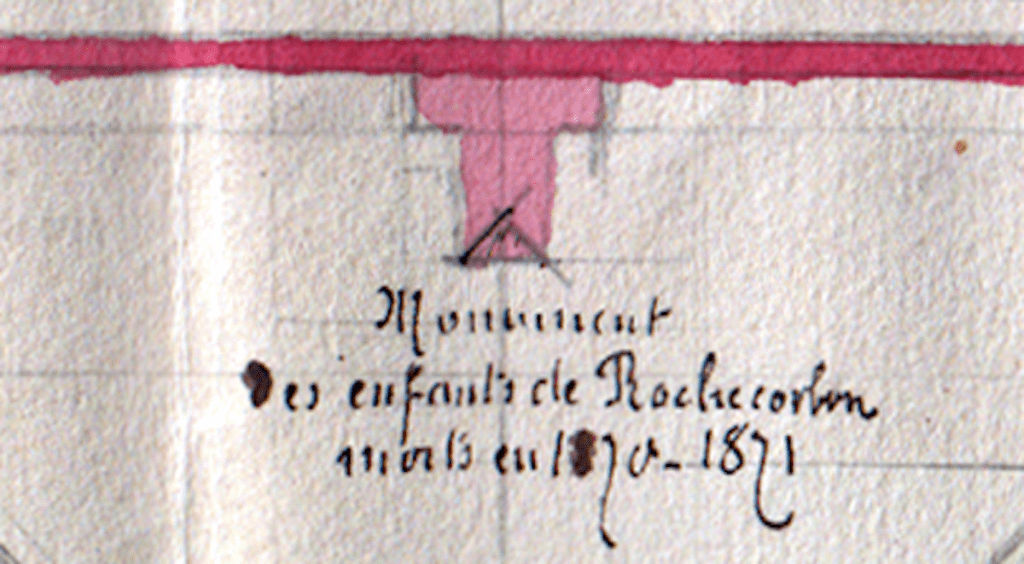 Monument
des enfants de Rochecorbon
morts en 1870-1871